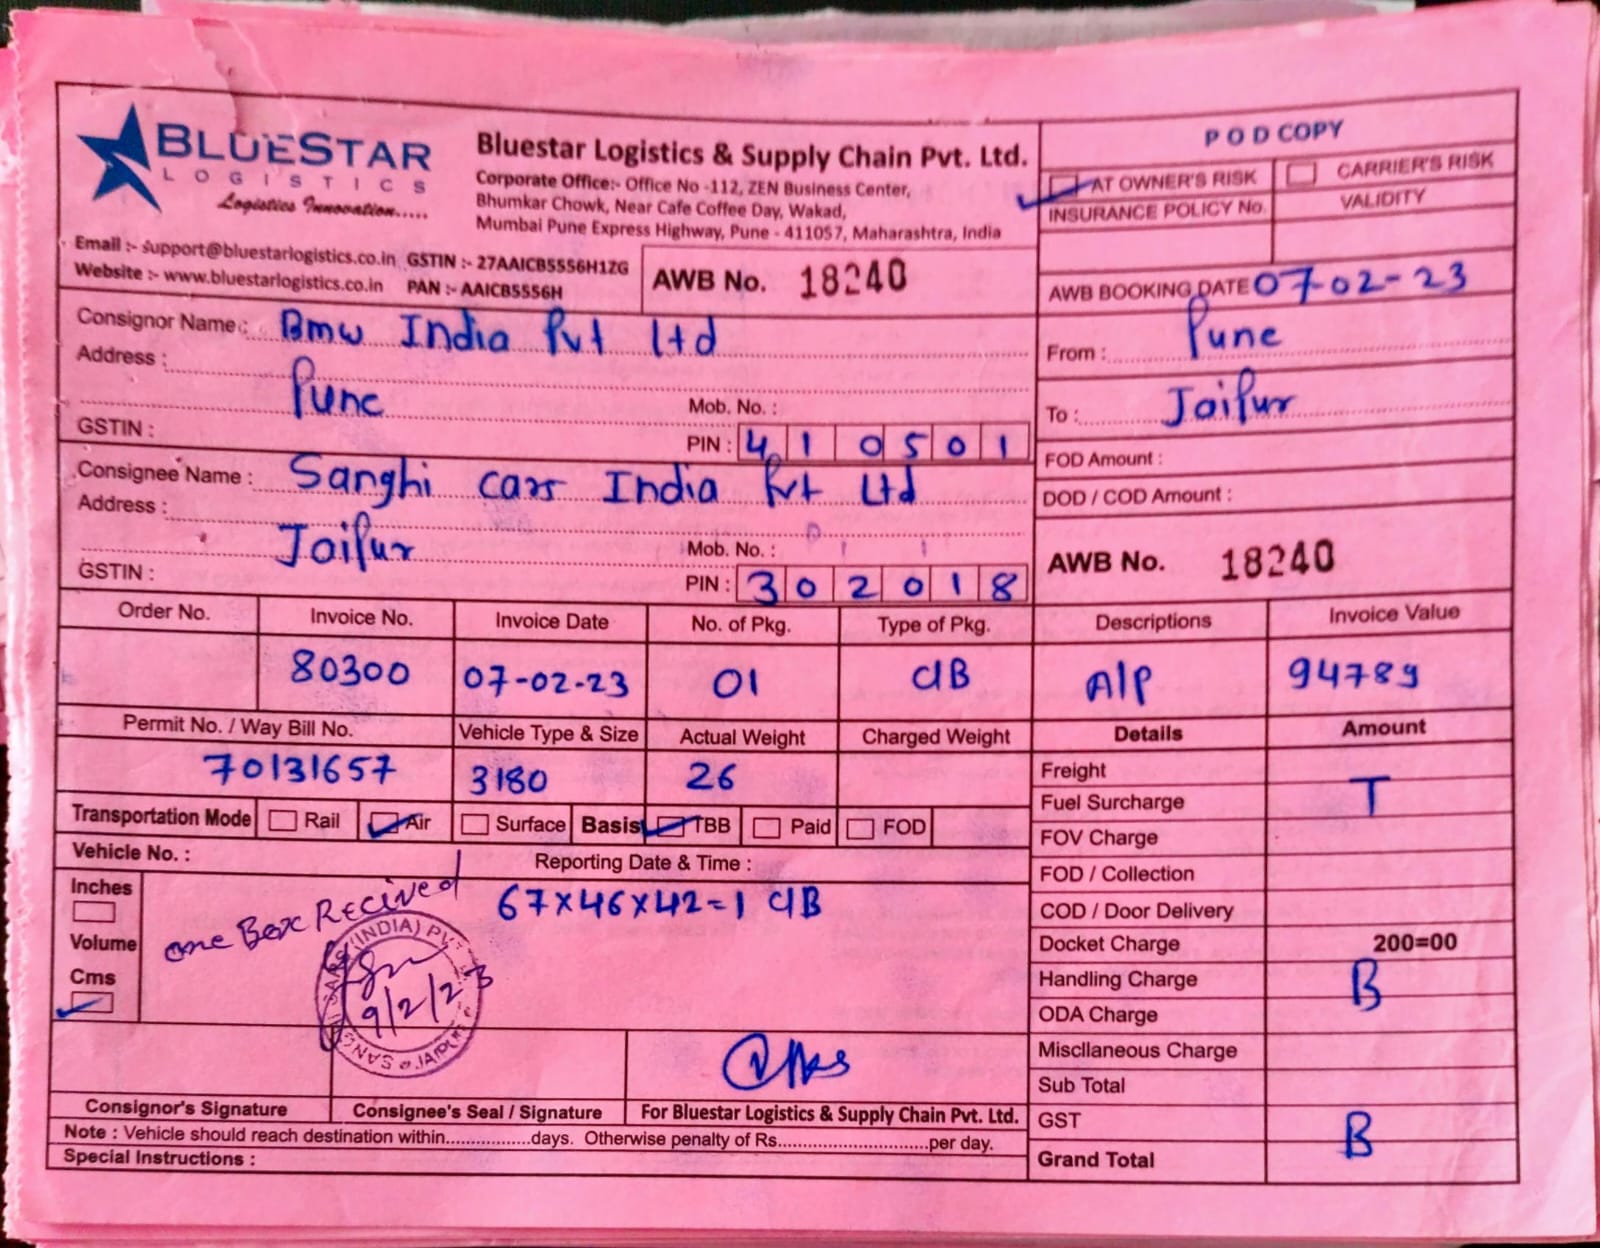 BLUESTAR
LOGISTICS
Logistics Innovation.....
Bluestar Logistics & Supply Chain Pvt. Ltd.
Corporate Office:- Office No -112, ZEN Business Center,
Bhumkar Chowk, Near Cafe Coffee Day, Wakad,
Mumbai Pune Express Highway, Pune - 411057, Maharashtra, India
Email :- support@bluestarlogistics.co.in GSTIN :- 27AAICB5556H1ZG
Website :- www.bluestarlogistics.co.in PAN :- AAICB5556H
AWB No. 18240
POD COPY
AT OWNER'S RISK CARRIER'S RISK
INSURANCE POLICY No. VALIDITY
AWB BOOKING DATE 07-02-23
From : Pune
To : Jaipur
FOD Amount :
DOD / COD Amount :
AWB No. 18240
Consignor Name : Bmw India Pvt Ltd
Address :
Pune Mob. No. :
GSTIN : PIN : 410501
Consignee Name : Sanghi cars India Pvt Ltd
Address :
Jaipur Mob. No. :
GSTIN : PIN : 302018
Order No. Invoice No. Invoice Date No. of Pkg. Type of Pkg. Descriptions Invoice Value
80300 07-02-23 01 C/B A/P 94789
Permit No. / Way Bill No. Vehicle Type & Size Actual Weight Charged Weight Details Amount
70131657 3180 26
Transportation Mode Rail Air Surface Basis TBB Paid FOD
Vehicle No. : Reporting Date & Time :
Inches
Volume
Cms
one Box Recived
67x46x42=1 C/B
(INDIA) PVT
9/2/23
SANGHI
JAIPUR
Freight
Fuel Surcharge T
FOV Charge
FOD / Collection
COD / Door Delivery
Docket Charge 200=00
Handling Charge B
ODA Charge
Miscllaneous Charge
Sub Total
GST B
Grand Total
Consignor's Signature Consignee's Seal / Signature For Bluestar Logistics & Supply Chain Pvt. Ltd.
Note : Vehicle should reach destination within.................days. Otherwise penalty of Rs..............................per day.
Special Instructions :